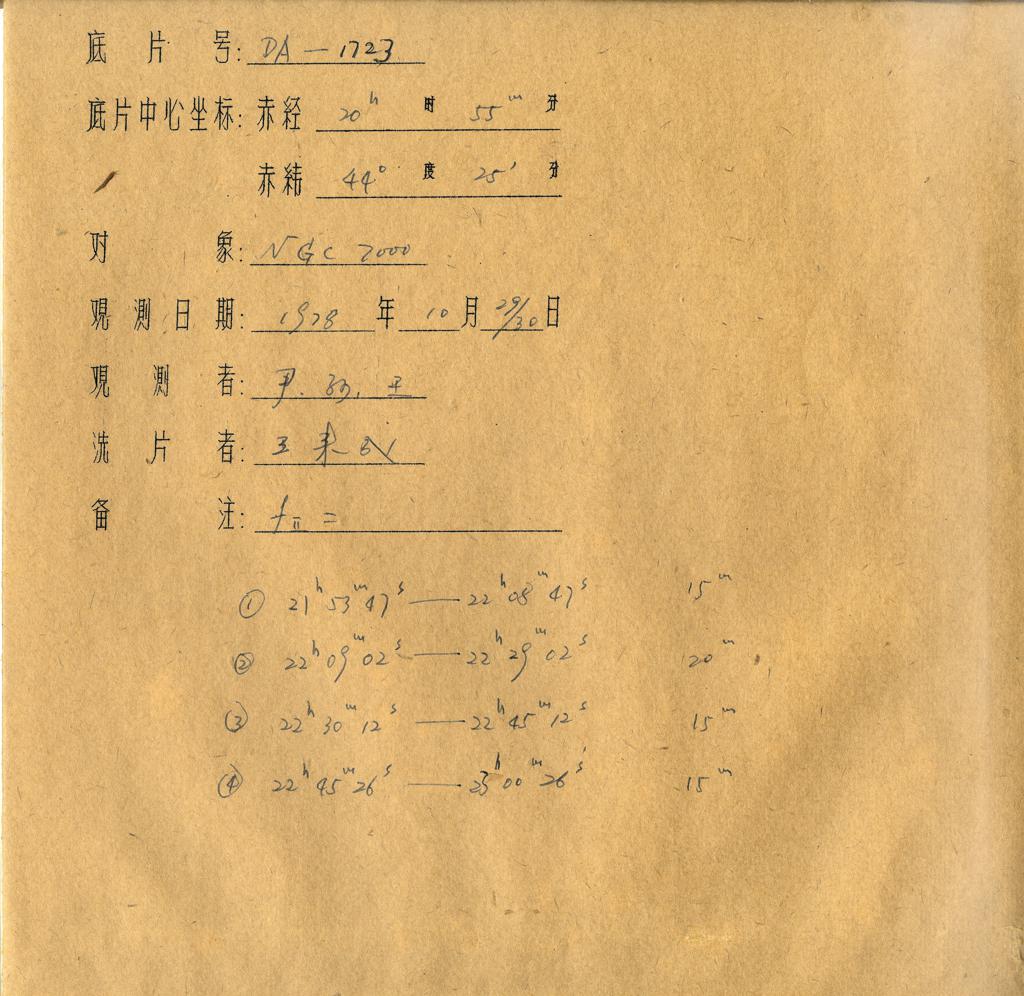 底片号: DA—1723
底片中心坐标: 赤经 20ʰ 时 55ᵐ 分
赤纬 44° 度 25′ 分
对象: NGC 7000
观测日期: 1978 年 10 月 29/30 日
观测者: 尹. 孙. 王
洗片者: 王
备注: fⅡ =
① 21ʰ53ᵐ47ˢ —— 22ʰ08ᵐ47ˢ 15ᵐ
② 22ʰ09ᵐ02ˢ —— 22ʰ29ᵐ02ˢ 20ᵐ
③ 22ʰ30ᵐ12ˢ —— 22ʰ45ᵐ12ˢ 15ᵐ
④ 22ʰ45ᵐ26ˢ —— 23ʰ00ᵐ26ˢ 15ᵐ